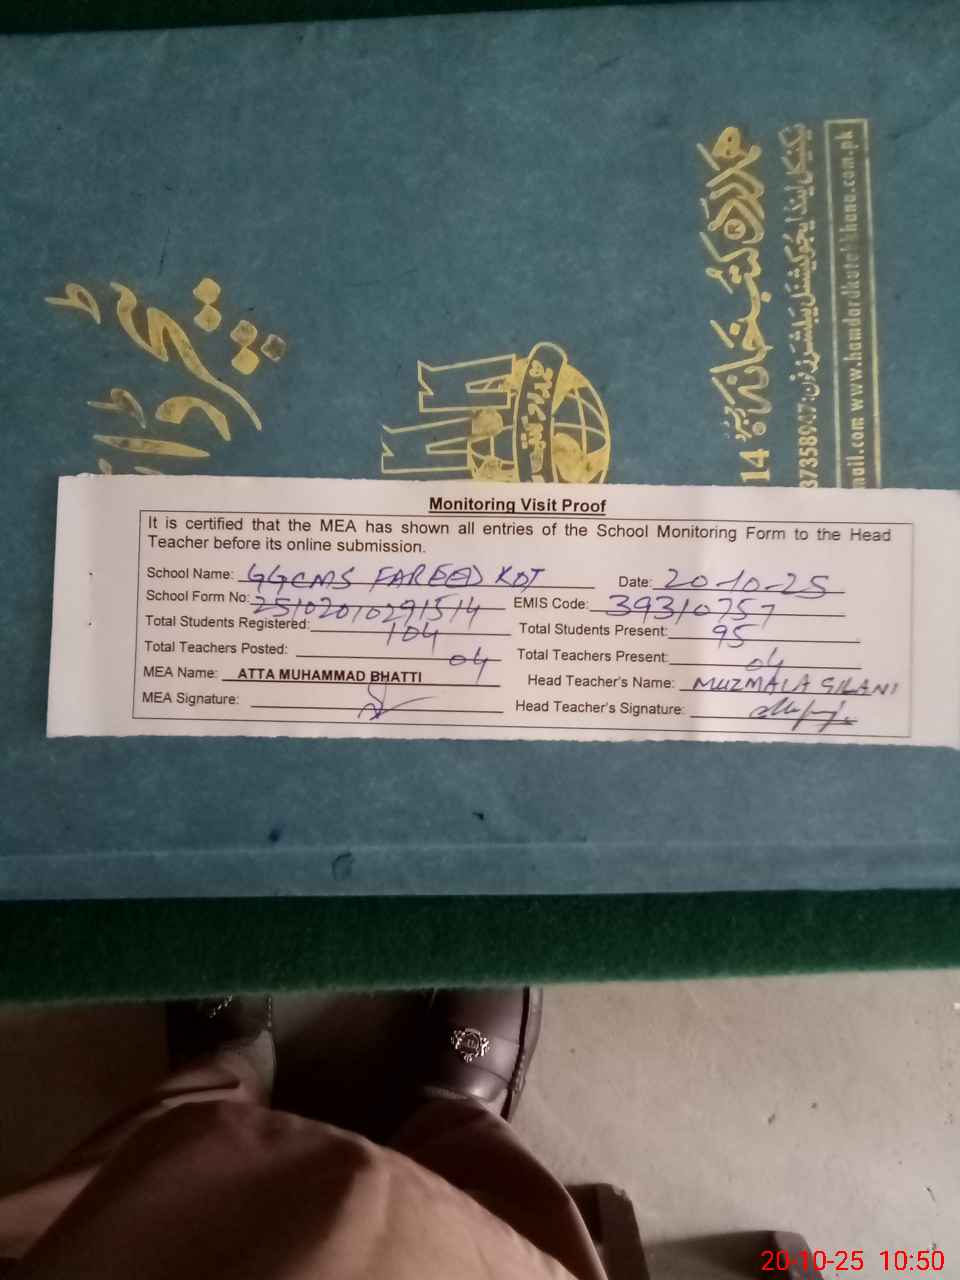 ہمدرد کتب خانہ
14
373589
mail.com www.hamdardkutabkhana.com.pk
Monitoring Visit Proof
It is certified that the MEA has shown all entries of the School Monitoring Form to the Head
Teacher before its online submission.
School Name: GGCMS FAREED KOT Date: 20-10-25
School Form No: 25102010291514 EMIS Code: 39310757
Total Students Registered: 104 Total Students Present: 95
Total Teachers Posted: 04 Total Teachers Present: 04
MEA Name: ATTA MUHAMMAD BHATTI Head Teacher's Name: MUZMALA GILANI
MEA Signature: Head Teacher's Signature:
20-10-25 10:50